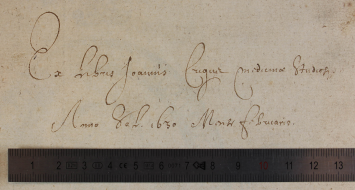 Ex Libris Joannis medicinæ Studiosi.
Anno 1630 Mense februario.
1 2 3 4 5 6 7 8 9 10 11 12 13